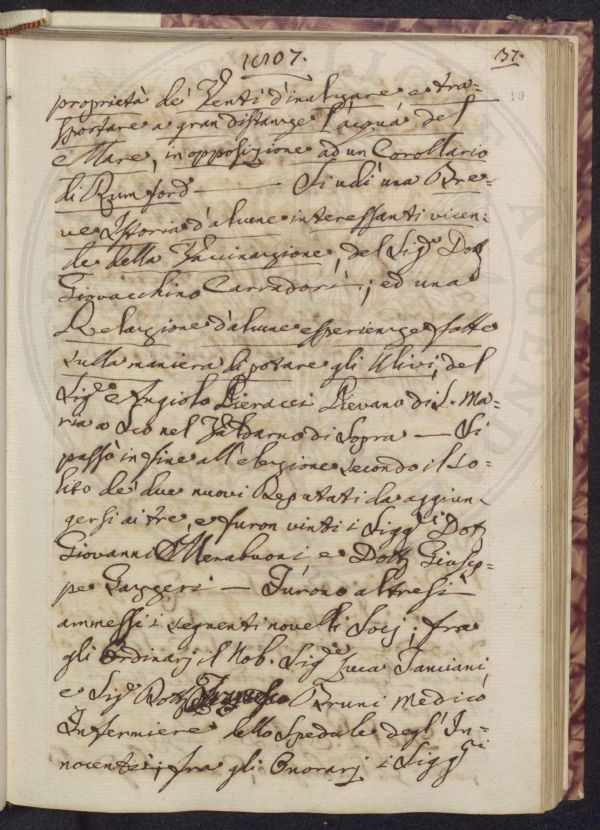 1807. 37.
19
proprietà de' Venti d'inalzare e tra-
sportare a gran distanze l'acqua del
Mare, in opposizione ad un Corollario
di Rumford ——— Si udì una Bre-
ve Istoria d'alcune interessanti vicen-
de della Vaccinazione, del Sig.e Dott
Giovacchino Carradori; ed una
Relazione d'alcune esperienze fatte
sulla maniera di potare gli Ulivi, del
Sig.e Angiolo Pieracci Pievano di S. Ma-
ria a Sco nel Valdarno di Sopra — Si
passò in fine all'elezione secondo il so-
lito de' due nuovi Deputati da aggiun-
gersi ai tre, e furon vinti i Sigg.i Dott
Giovanni Menabuoni e Dott Giusep-
pe Gazzeri — Furono altresì
ammessi i seguenti novelli Socj; fra
gli Ordinarj il Nob. Sig.e Luca
e Sig.e Dott Francesco Bruni Medico
Infermiere dello Spedale degl'In-
nocenti; fra gli Onorarj i Sigg.i